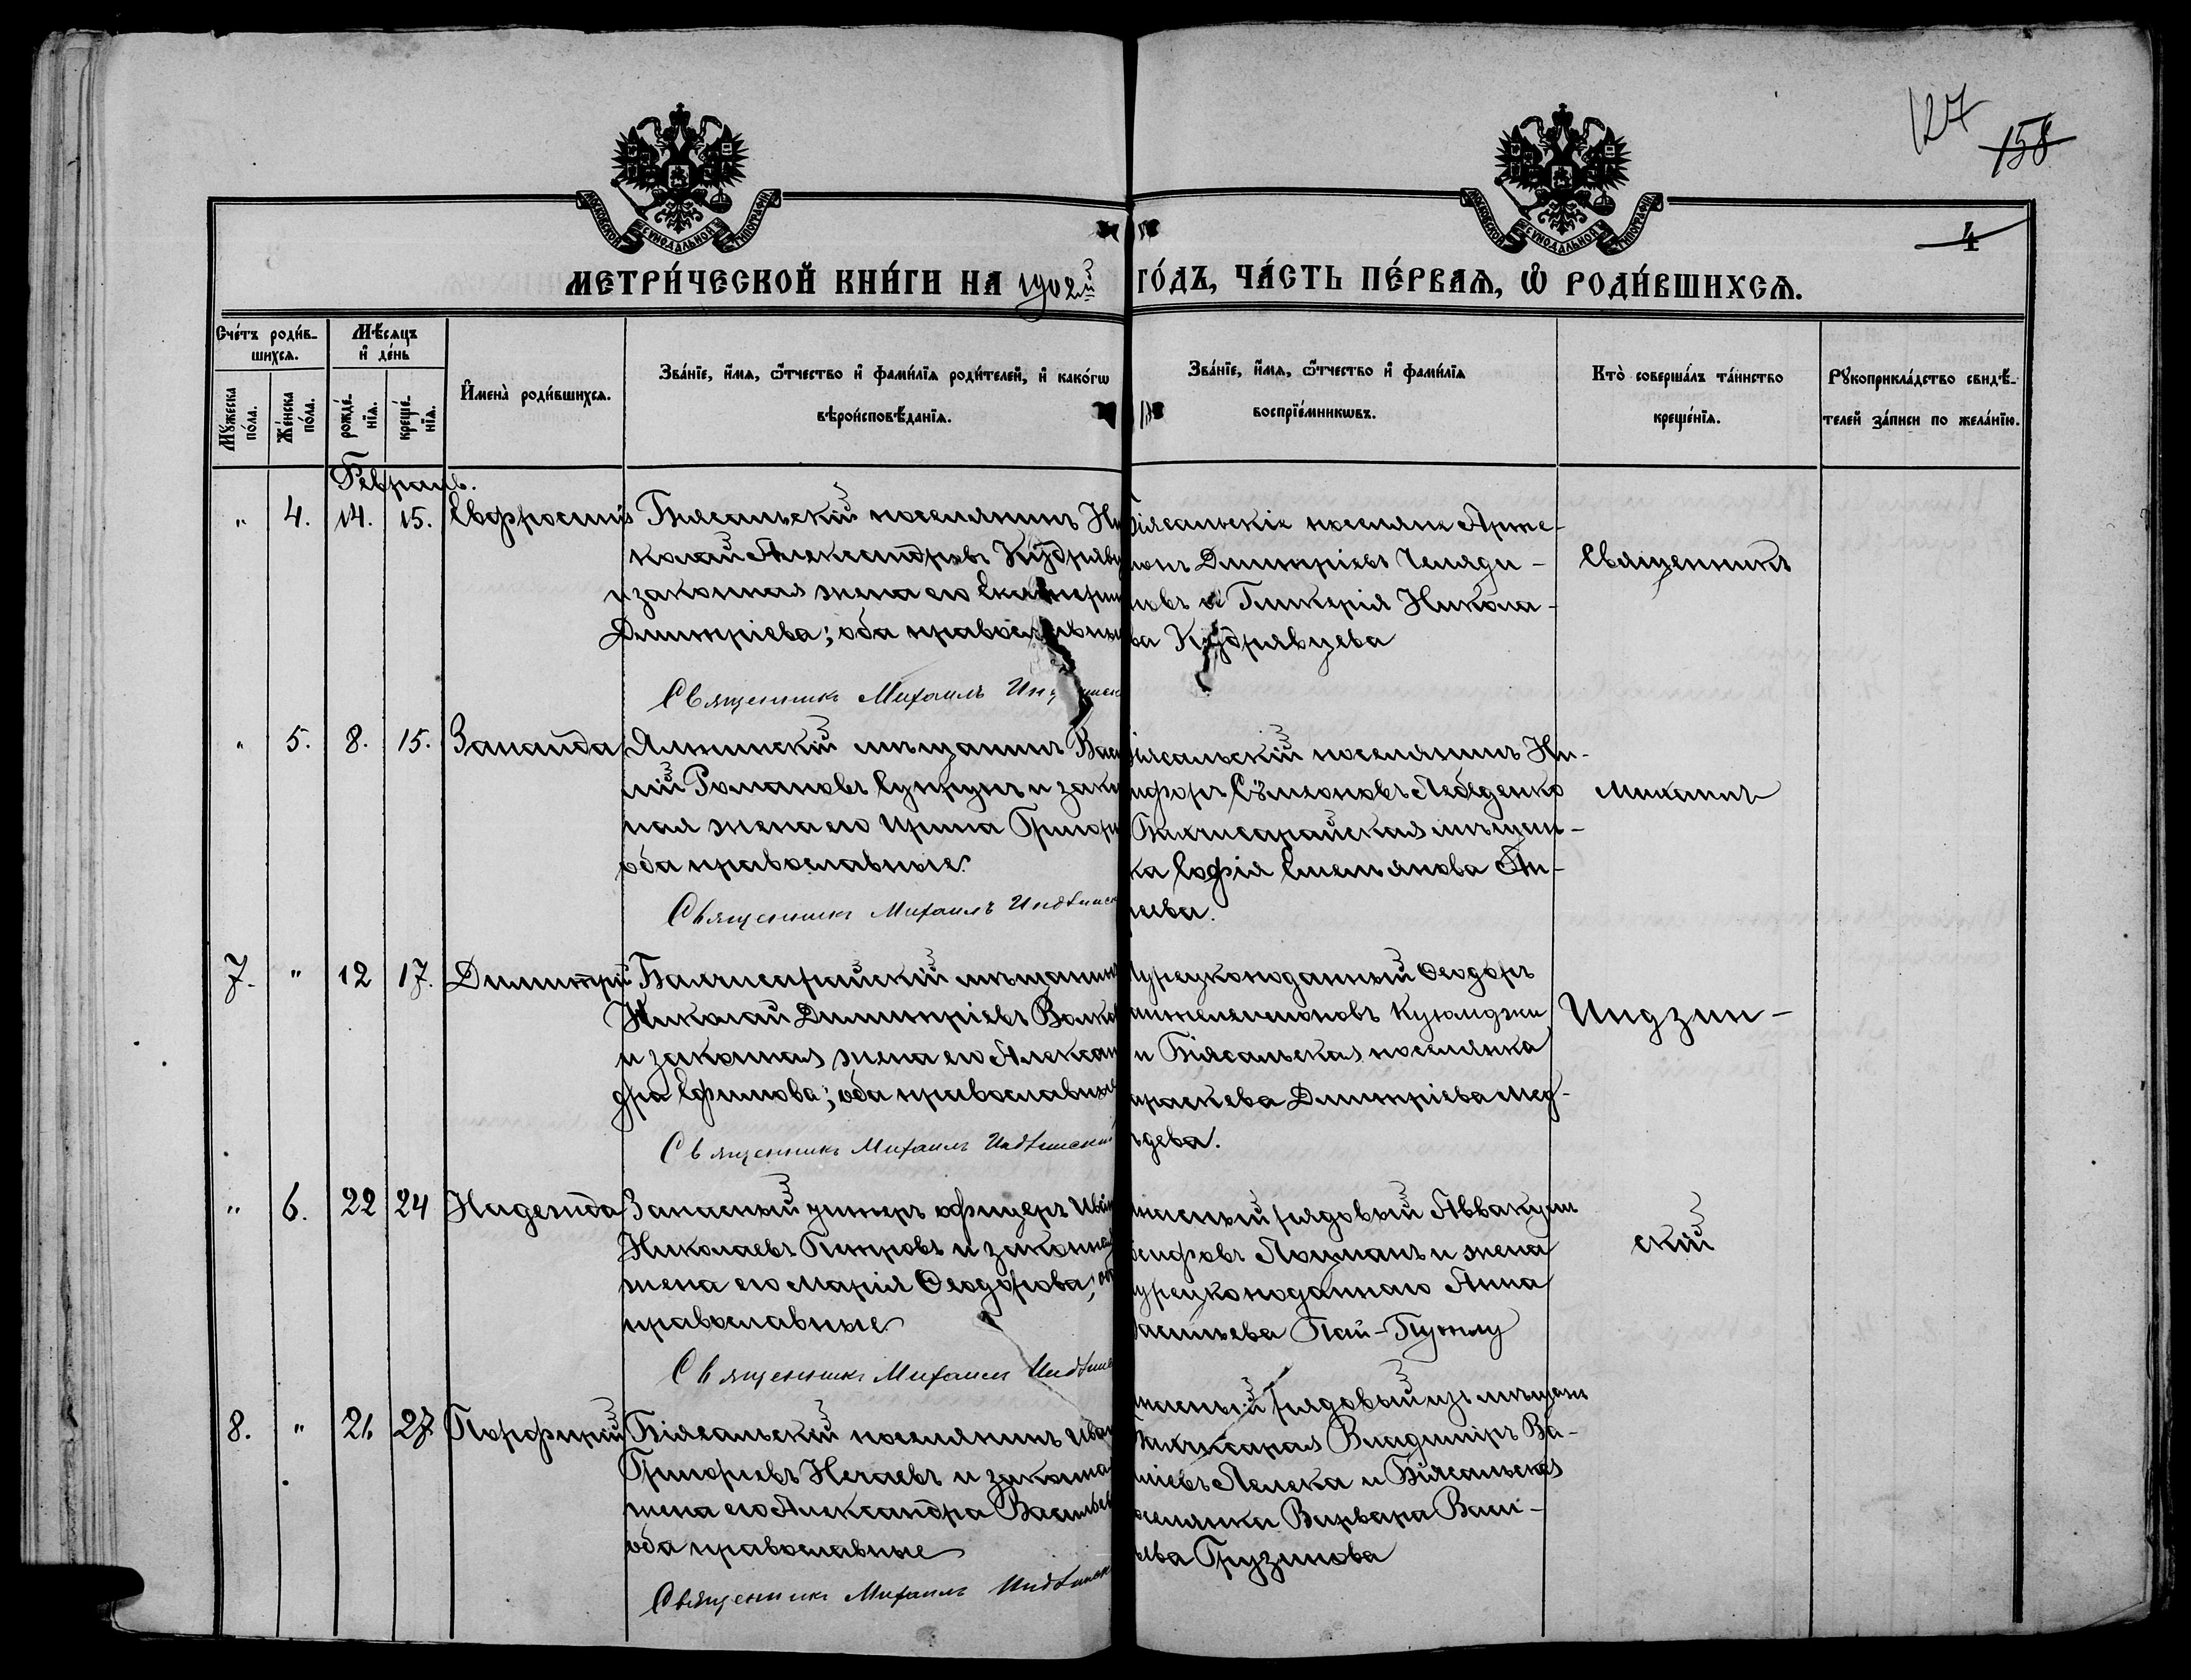 127
158
4
МОСКОВСКОЙ СѴНОДАЛЬНОЙ ТИПОГРАФІИ
МОСКОВСКОЙ СѴНОДАЛЬНОЙ ТИПОГРАФІИ
МЕТРИ́ЧЕСКОЙ КНИ́ГИ НА 1902й ГО́ДЪ, ЧА́СТЬ ПЕ́РВАѦ, Ѽ РОДИ́ВШИХСѦ.
Сче́тъ роди́в-
шихсѧ.
Мꙋ́жеска по́ла.
Же́нска по́ла.
Мѣ́сяцъ
и҆ де́нь
рожде́-нїѧ.
креще́-нїѧ.
И҆мена̀ роди́вшихсѧ.
Зва́нїе, и҆́мѧ, ѻ҆́тчество и҆ фами́лїѧ роди́телей, и҆ како́гѡ
вѣроисповѣ́данїѧ.
Зва́нїе, и҆́мѧ, ѻ҆́тчество и҆ фами́лїѧ
воспрїе́мникѡвъ.
Кто̀ соверша́лъ та́инство
креще́нїѧ.
Рꙋкоприкла́дство свидѣ́-
телей за́писи по жела́нїю.
Февраль.
" 4. 14. 15. Евфросинія
Біясальскій поселянинъ Ни
колай Александровъ Кудрявц
и законная жена его Екатерин
Димитріева; оба православны
Священникъ Михаилъ Инд
біясальскіе поселяне Арте-
Димитріевъ Челяди-
новъ и Гликерія Никола-
ва Кудрявцева
Священникъ
" 5. 8. 15. Зинаида
Ялтинскій мѣщанинъ Васи
лій Романовъ Супрунъ и закон
ная жена его Ирина Григорь
оба православные.
Священникъ Михаилъ Индзинск
біясальскій поселянинъ Ни-
кифоръ Сѵмеоновъ Лебеденко
Бахчисарайская мѣщан-
ка Софія Емельянова
Михаилъ
7. " 12 17. Димитрій
Бахчисарайскій мѣщанинъ
Николай Димитріевъ Волко
и законная жена его Алексан
дра Ефимова; оба православные
Священникъ Михаилъ Индзинскій
турецкоподданный Ѳеодоръ
Куюмджи
и Біясальская поселянка
Параскева Димитріева Мед-
вѣдева.
Индзин-
" 6. 22 24 Надежда
Запасный унтеръ офицеръ Иван
Николаевъ Петровъ и законная
жена его Марія Ѳеодорова; оба
православные
Священникъ Михаилъ Индзинс
запасный рядовый Аввакумъ
Лоцманъ и жена
турецкоподданнаго Анна
Васильева Пай-
скій
8. " 21. 27. Порфирій
Біясальскій поселянинъ Иван
Григорьевъ Нечаевъ и законна
жена его Александра Васильев
оба православные
Священникъ Михаилъ Индзинск
запасный рядовый изъ мѣщанъ
Бахчисарая Владиміръ Ва-
силіевъ Лелека и Біясальская
поселянка Варвара Васи-
льева Грузинова